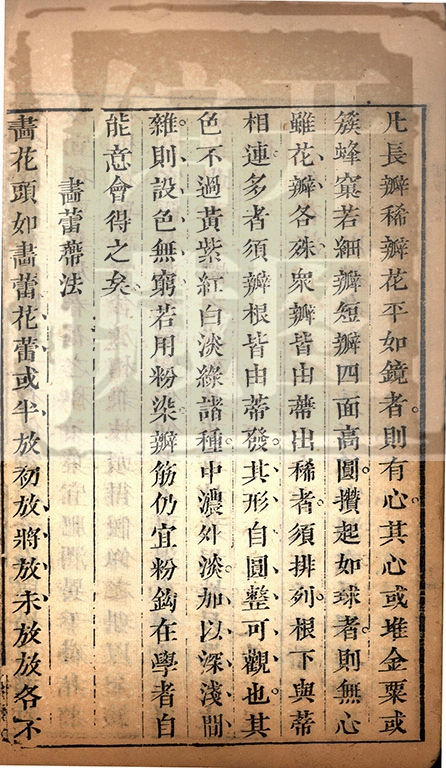 凡長瓣稀瓣花平如鏡者則有心其心或堆金粟或
簇蜂窠若細瓣短瓣四面高圓攢起如球者則無心
雖花瓣各殊衆瓣皆由蔕出稀者須排列根下與蒂
相連多者須瓣根皆由蒂發其形自圓整可觀也其
色不過黃紫紅白淡綠諸種中濃外淡加以深淺間
雜則設色無窮若用粉染瓣筋仍宜粉鈎在學者自
能意會得之矣
畵蕾蔕法
畵花頭如畵蕾花蕾或半放初放將放未放放各不